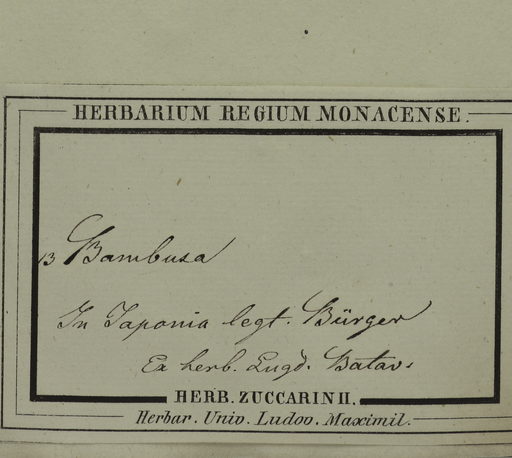 HERBARIUM REGIUM MONACENSE.
13 Bambusa
In Japonia legt. Bürger
Ex herb. Lugd. Batav.
HERB. ZUCCARINII.
Herbar. Univ. Ludov. Maximil.